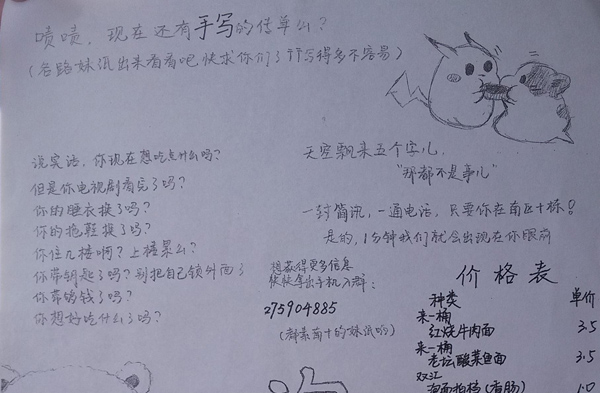 啧啧，现在还有手写的传单么？
（各路妹纸出来看看吧快求你们了TT写得多不容易）
说实话，你现在想吃点什么吗？
但是你电视剧看完了吗？
你的睡衣换了吗？
你的拖鞋换了吗？
你住几楼啊？上楼累么？
你带钥匙了吗？别把自己锁外面了
你带够钱了吗？
你想好吃什么了吗？
天空飘来五个字儿，
“那都不是事儿”
一封简讯，一通电话，只要你在南区十栋！
是的，1分钟我们就会出现在你眼前
想获得更多信息
快快拿出手机入群：
275904885
（都是南十的妹纸哟）
价格表
种类 单价
来一桶
红烧牛肉面 3.5
来一桶
老坛酸菜鱼面 3.5
双汇
泡面拍档（香肠） 1.0